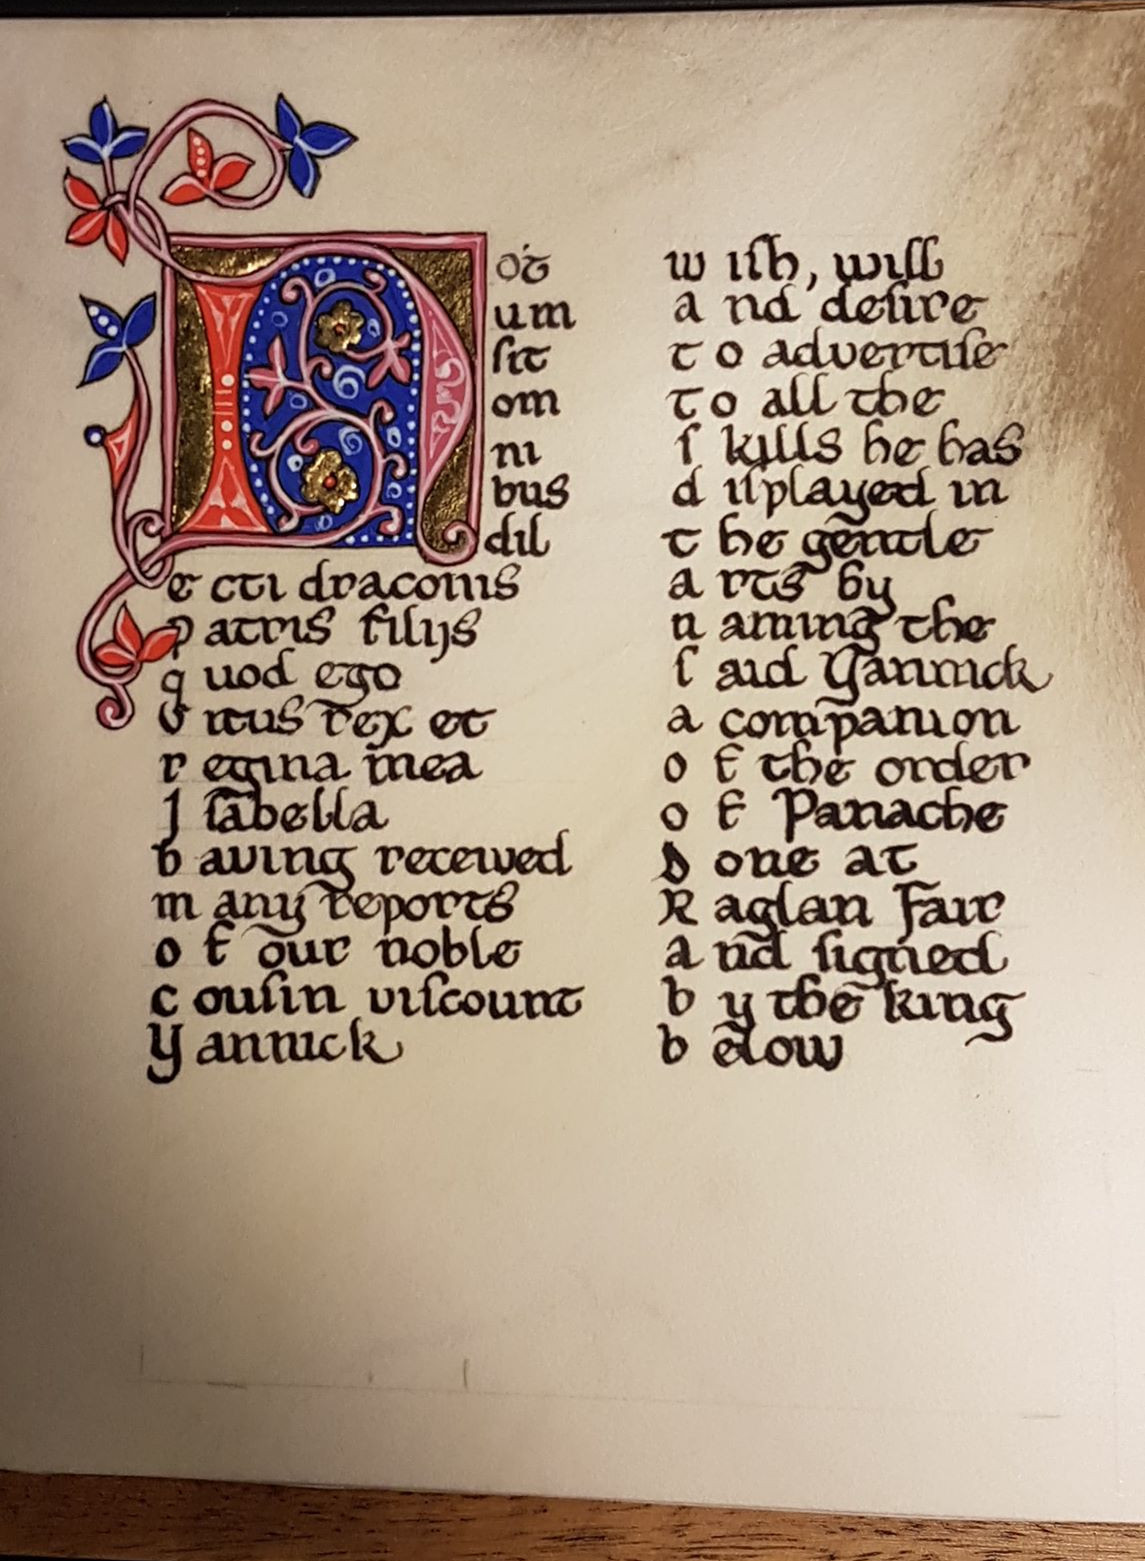 Not
um
sit
om
ni
bus
dil
e cti draconis
p atris filijs
q uod ego
v itus rex et
r egina mea
J sabella
h aving receiued
m any reports
o f our noble
c ousin viscount
Y annick
w ish, will
a nd desire
t o advertise
t o all the
s kills he has
d isplayed in
t he gentle
a rts by
n aming the
s aid Yannick
a companion
o f the order
o f Panache
D one at
R aglan Fair
a nd signed
b y the king
b elow